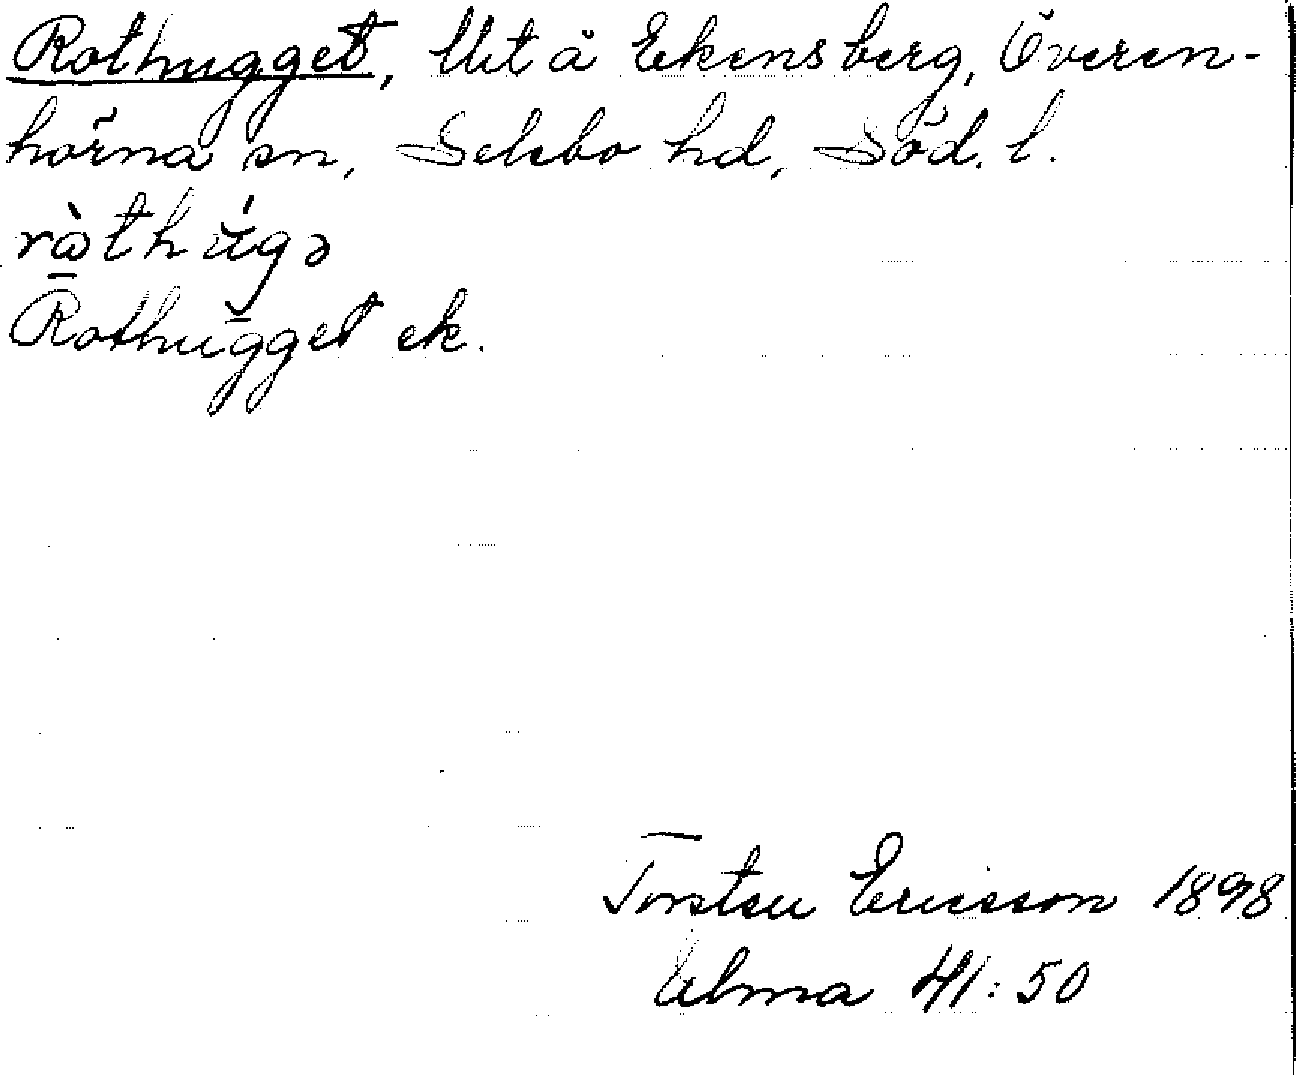 Rothugget, Ut å Ekensberg, Överen-
hörna sn, Selebo hd, Söd. l.
ràthúgə
Rothugget ek.
Torsten Ericsson 1898
Ulma 41:50